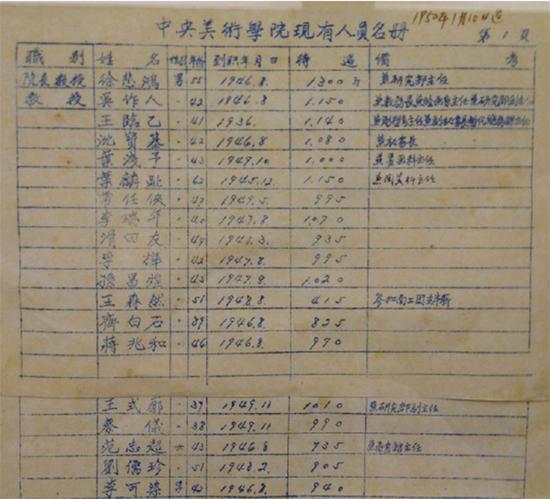 中央美術學院現有人員名冊 1950年1月10日造 第1頁
職別 姓名 性別 年齡 到職年月日 待遇 備考
院長教授 徐悲鴻 男 55 1946.8 1300 兼研究部主任
教授 吳作人 〃 42 1946.8 1.150
王臨乙 〃 41 1936. 1.140
沈寶基 〃 42 1946.8 1.080 兼秘書長
葉淺予 〃 43 1949.10 1.000
葉麟趾 〃 62 1945.12. 1.150
常任俠 〃 47 1949.5. 995
李瑞年 〃 40 1947.8 1.070
滑田友 〃 49 1947.3. 935
李樺 〃 42 1947.8. 995
孫昌煌 〃 43 1947.9. 1.020
王森然 〃 51 1948.8. 415
齊白石 〃 89 1946.8. 825
蔣兆和 〃 46 1946.8. 990
王式廓 〃 39 1949.11 1010 兼研究部副主任
秦儀 〃 38 1949.11 990
范志超 女 43 1946.8 735
劉儒珍 〃 51 1948.2. 905
李可染 男 42 1946.8. 940